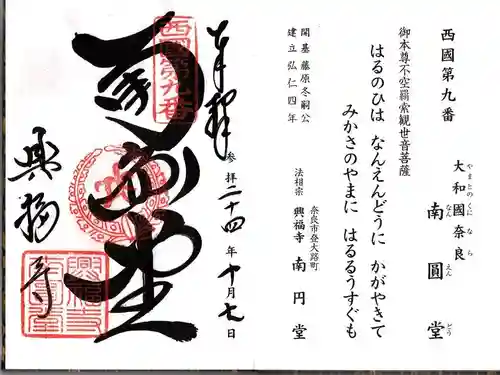 西國第九番
大和國奈良
やまとのくに なら
南圓堂
なんえんどう
御本尊不空羂索観世音菩薩
はるのひは なんえんどうに かがやきて
みかさのやまに はるるうすぐも
開基 藤原冬嗣公
建立 弘仁四年
奈良市登大路町
法相宗 興福寺 南円堂
奉拝
参拝二十四年十月七日
西國第九番
南圓堂
興福寺